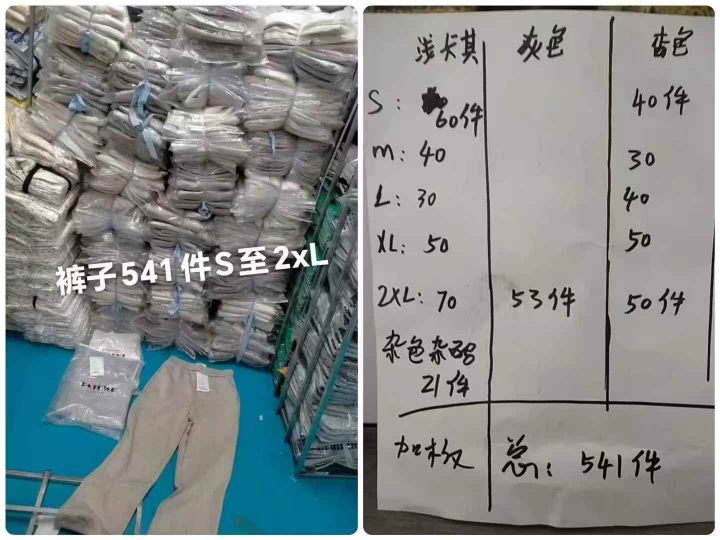 裤子541件S至2xL
浅卡其 灰色 杏色
S: 60件 40件
m: 40 30
L: 30 40
XL: 50 50
2XL: 70 53件 50件
杂色杂码
21件
总: 541件